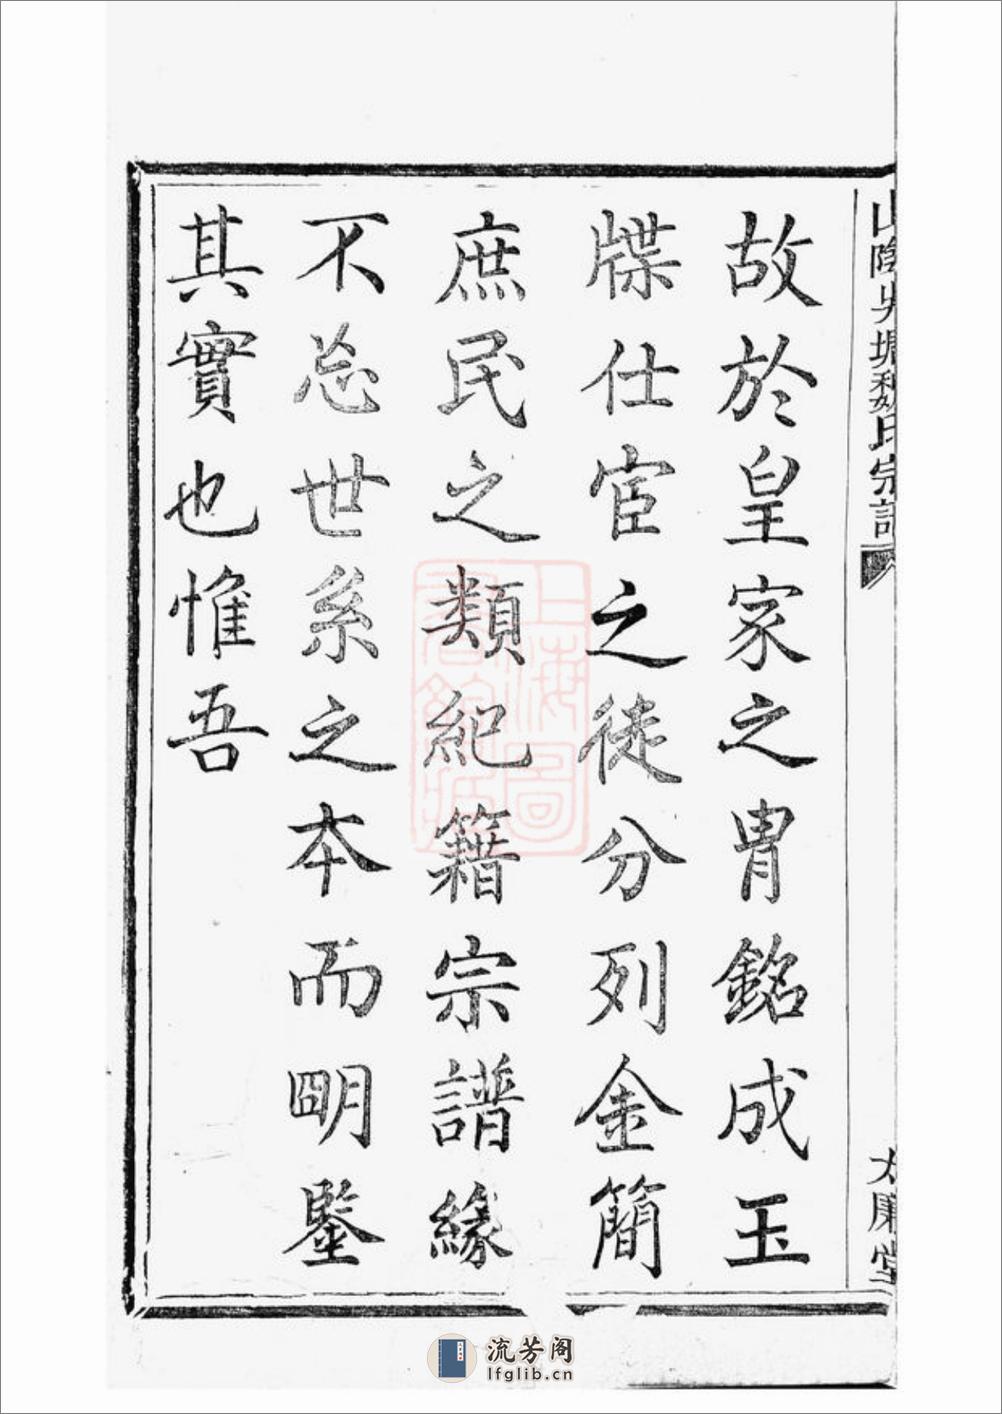 山陰吳塘魏氏宗譜
大廉堂
故於皇家之胄銘成玉
牒仕宦之徒分列金簡
庶民之類紀籍宗譜緣
不忘世系之本而明鑒
其實也惟吾
上海圖書館藏
流芳阁
lfglib.cn